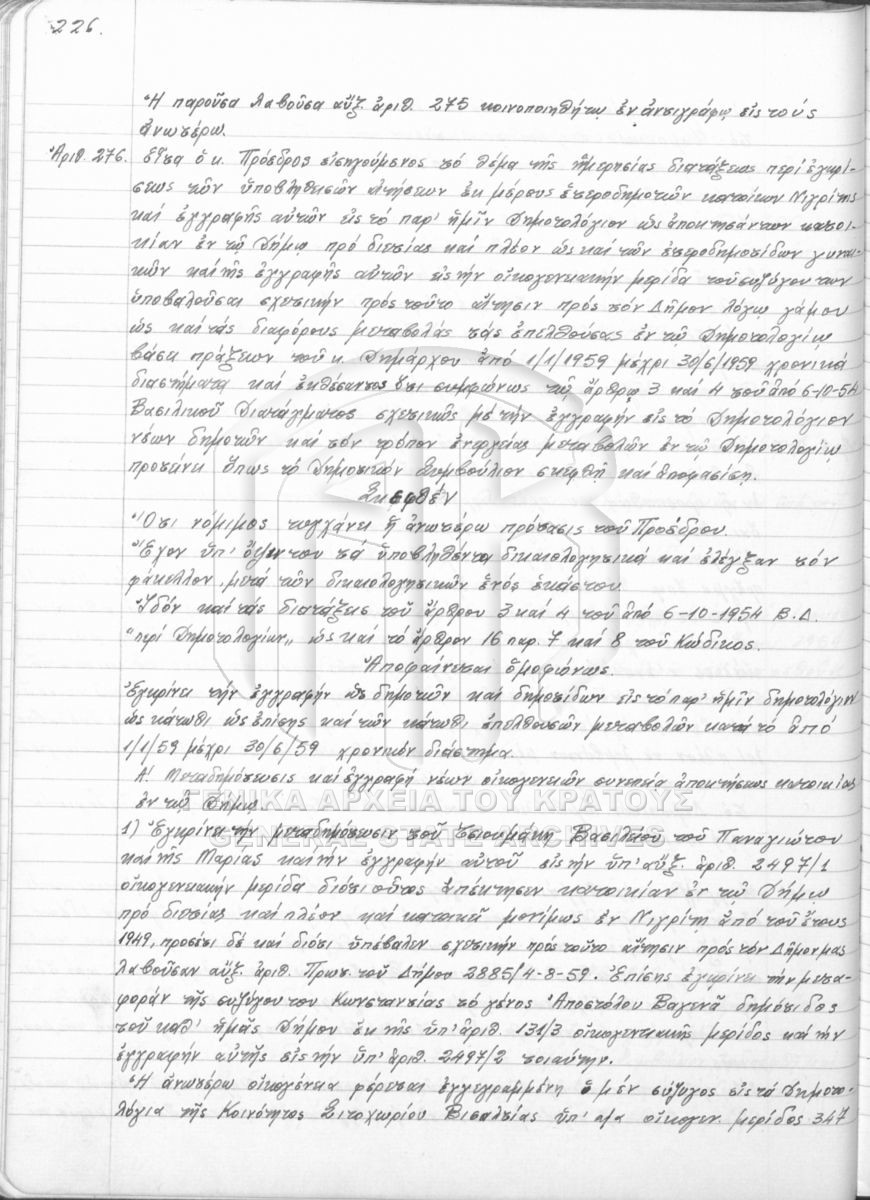 226.
Ἡ παροῦσα λαβοῦσα αὔξ. ἀριθ. 275 κοινοποιηθήτω ἐν ἀντιγράφῳ εἰς τούς
ἀνωτέρω.
Ἀριθ. 276. Εἶτα ὁ κ. Πρόεδρος εἰσηγούμενος τό θέμα τῆς ἡμερησίας διατάξεως περί ἐγκρί-
σεως τῶν ὑποβληθεισῶν αἰτήσεων ἐκ μέρους ἑτεροδημοτῶν κατοίκων Νιγρίτης
καί ἐγγραφῆς αὐτῶν εἰς τό παρ' ἡμῖν Δημοτολόγιον ὡς ἀποκτησάντων κατοι-
κίαν ἐν τῷ Δήμῳ πρό διετίας καί πλέον ὡς καί τῶν ἑτεροδημοτίδων γυναι-
κῶν καί τῆς ἐγγραφῆς αὐτῶν εἰς τήν οἰκογενειακήν μερίδα τοῦ συζύγου των
ὑποβαλοῦσαι σχετικήν πρός τοῦτο αἴτησιν πρός τόν Δῆμον λόγῳ γάμου
ὡς καί τάς διαφόρους μεταβολάς τάς ἐπελθούσας ἐν τῷ Δημοτολογίῳ
βάσει πράξεων τοῦ κ. Δημάρχου ἀπό 1/1/1959 μέχρι 30/6/1959 χρονικά
διαστήματα καί ἐκθέσαντος ὅτι συμφώνως τῷ ἄρθρῳ 3 καί 4 τοῦ ἀπό 6-10-54
Βασιλικοῦ Διατάγματος σχετικῶς μέ τήν ἐγγραφήν εἰς τό Δημοτολόγιον
νέων δημοτῶν καί τόν τρόπον ἐνεργείας μεταβολῶν ἐν τῷ Δημοτολογίῳ
προτείνει ὅπως τό Δημοτικόν Συμβούλιον σκεφθῇ καί ἀποφασίσῃ.
Σκεφθέν
Ὅτι νόμιμος τυγχάνει ἡ ἀνωτέρω πρότασις τοῦ Προέδρου.
Ἔχον ὑπ' ὄψιν του τά ὑποβληθέντα δικαιολογητικά καί ἐλέγξαν τόν
φάκελλον μετά τῶν δικαιολογητικῶν ἑνός ἑκάστου.
Ἰδόν καί τάς διατάξεις τοῦ ἄρθρου 3 καί 4 τοῦ ἀπό 6-10-1954 Β.Δ.
"περί Δημοτολογίων,, ὡς καί τό ἄρθρον 16 παρ. 7 καί 8 τοῦ Κώδικος.
Ἀποφαίνεται ὁμοφώνως.
Ἐγκρίνει τήν ἐγγραφήν ὡς δημοτῶν καί δημοτίδων εἰς τό παρ' ἡμῖν δημοτολόγιον
ὡς κάτωθι ὡς ἐπίσης καί τῶν κάτωθι ἐπελθουσῶν μεταβολῶν κατά τό ἀπό
1/1/59 μέχρι 30/6/59 χρονικόν διάστημα.
Α! Μεταδημότευσις καί ἐγγραφή νέων οἰκογενειῶν συνεπεία ἀποκτήσεως κατοικίας
ἐν τῷ Δήμῳ
ΓΕΝΙΚΑ ΑΡΧΕΙΑ ΤΟΥ ΚΡΑΤΟΥΣ
GENERAL STATE ARCHIVES
1) Ἐγκρίνει τήν μεταδημότευσιν τοῦ Τσιουμάκη Βασιλείου τοῦ Παναγιώτου
καί τῆς Μαρίας καί τήν ἐγγραφήν αὐτοῦ εἰς τήν ὑπ' αὔξ. ἀριθ. 2497/1
οἰκογενειακήν μερίδα διότι οὗτος ἀπέκτησεν κατοικίαν ἐν τῷ Δήμῳ
πρό διετίας καί πλέον καί κατοικεῖ μονίμως ἐν Νιγρίτῃ ἀπό τοῦ ἔτους
1949, προσέτι δέ καί διότι ὑπέβαλεν σχετικήν πρός τοῦτο αἴτησιν πρός τόν Δῆμον μας
λαβοῦσαν αὔξ. ἀριθ. Πρωτ. τοῦ Δήμου 2885/4-8-59. Ἐπίσης ἐγκρίνει τήν μετα-
φοράν τῆς συζύγου του Κωνσταντίας τό γένος Ἀποστόλου Βαγενᾶ δημότιδος
τοῦ καθ' ἡμᾶς Δήμου ἐκ τῆς ὑπ' ἀριθ. 131/3 οἰκογενειακῆς μερίδος καί τήν
ἐγγραφήν αὐτῆς εἰς τήν ὑπ' ἀριθ. 2497/2 τοιαύτην.
Ἡ ἀνωτέρω οἰκογένεια φέρεται ἐγγεγραμμένη ὁ μέν σύζυγος εἰς τά Δημοτο-
λόγια τῆς Κοινότητος Σιτοχωρίου Βισαλτίας ὑπ' α/α οἰκογεν. μερίδος 347